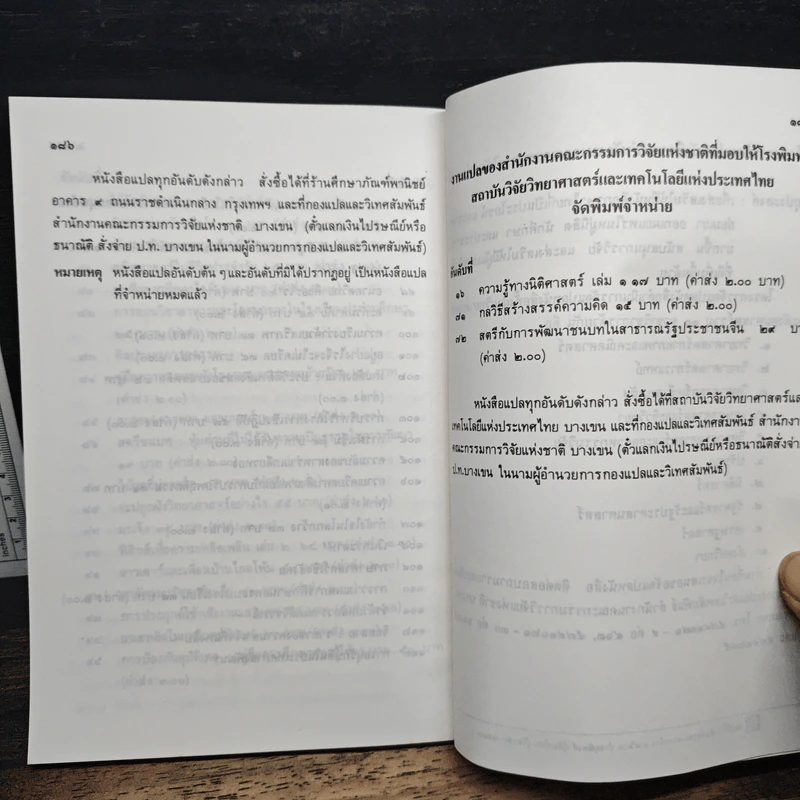 ๑๘๖
หนังสือแปลทุกอันดับดังกล่าว สั่งซื้อได้ที่ร้านศึกษาภัณฑ์พานิชย์
อาคาร ๙ ถนนราชดำเนินกลาง กรุงเทพฯ และที่กองแปลและวิเทศสัมพันธ์
สำนักงานคณะกรรมการวิจัยแห่งชาติ บางเขน (ตั๋วแลกเงินไปรษณีย์หรือ
ธนาณัติ สั่งจ่าย ป.ท. บางเขน ในนามผู้อำนวยการกองแปลและวิเทศสัมพันธ์)
หมายเหตุ หนังสือแปลอันดับต้น ๆ และอันดับที่มิได้ปรากฏอยู่ เป็นหนังสือแปล
ที่จำหน่ายหมดแล้ว
งานแปลของสำนักงานคณะกรรมการวิจัยแห่งชาติที่มอบให้โรงพิมพ์
สถาบันวิจัยวิทยาศาสตร์และเทคโนโลยีแห่งประเทศไทย
จัดพิมพ์จำหน่าย
อันดับที่
๑๖ ความรู้ทางนิติศาสตร์ เล่ม ๑ ๑๗ บาท (ค่าส่ง ๒.๐๐ บาท)
๗๑ กลวิธีสร้างสรรค์ความคิด ๑๕ บาท (ค่าส่ง ๒.๐๐)
๗๒ สตรีกับการพัฒนาชนบทในสาธารณรัฐประชาชนจีน ๒๙
(ค่าส่ง ๒.๐๐)
หนังสือแปลทุกอันดับดังกล่าว สั่งซื้อได้ที่สถาบันวิจัยวิทยาศาสตร์และ
เทคโนโลยีแห่งประเทศไทย บางเขน และที่กองแปลและวิเทศสัมพันธ์ สำนักงาน
คณะกรรมการวิจัยแห่งชาติ บางเขน (ตั๋วแลกเงินไปรษณีย์หรือธนาณัติสั่งจ่าย
ป.ท.บางเขน ในนามผู้อำนวยการกองแปลและวิเทศสัมพันธ์)